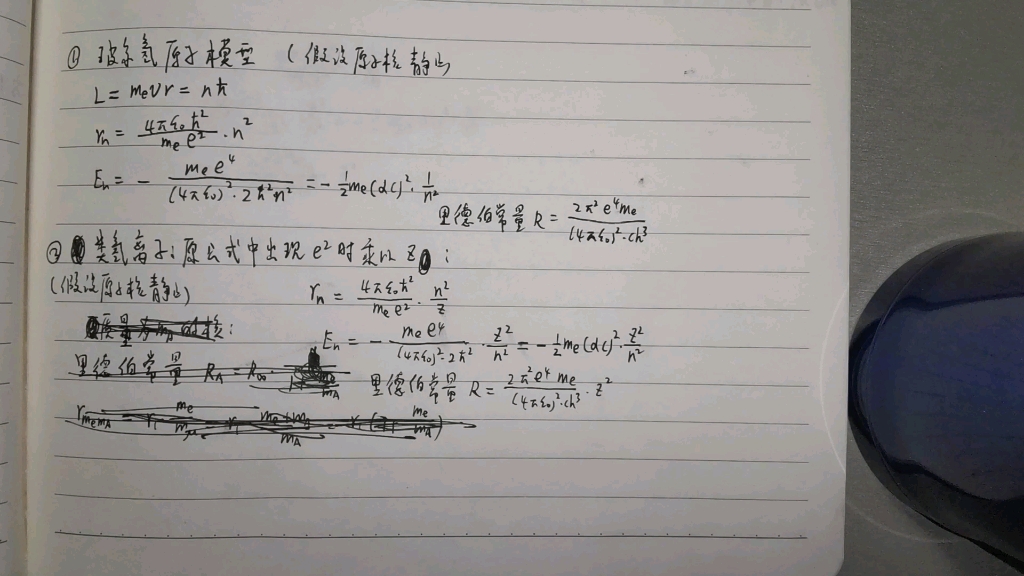 ① 玻尔氢原子模型 (假设原子核静止)
L = meυr = nħ
rn = 4πε₀ħ²/mee² · n²
En = - mee⁴/(4πε₀)²·2ħ²n² = -½me(αc)²·1/n²
里德伯常量 R = 2π²e⁴me/(4πε₀)²·ch³
② 类氢离子:原公式中出现 e² 时乘以 Z :
(假设原子核静止)
rn = 4πε₀ħ²/mee² · n²/Z
En = - mee⁴/(4πε₀)²2ħ² · Z²/n² = -½me(αc)²·Z²/n²
里德伯常量 RA = R∞ · mA
里德伯常量 R = 2π²e⁴me/(4πε₀)²·ch³ · Z²